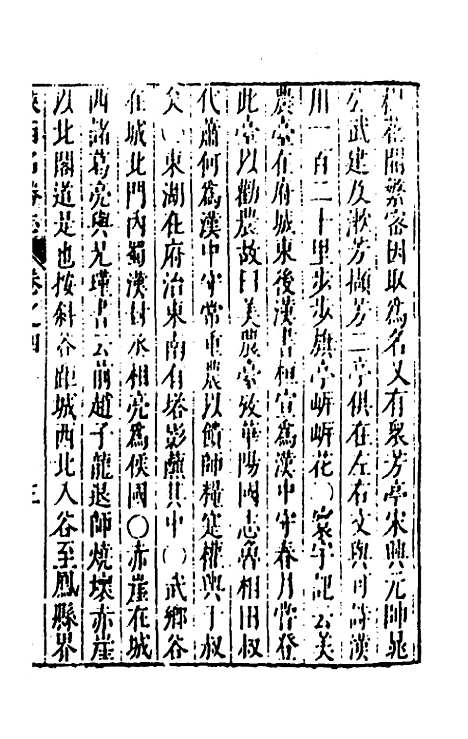 花開繁密因取為名又有眾芳亭宋興元帥晁
公武建及漱芳擷芳二亭俱在左右文與可詩漢
川一百二十里步步旗亭㟁㟁花〇寰宇記云美
農臺在府城東後漢書桓宣為漢中守春月嘗登
此臺以勸農故曰美農臺攷華陽國志魯相田叔
代蕭何為漢中守常重農以餽師糧寔權輿于叔
矣〇東湖在府治東南有塔影蘸其中〇武鄉谷
在城北門內蜀漢封丞相亮為侯國〇赤崖在城
西諸葛亮與兄瑾書云前趙子龍退師燒壞赤崖
以北閣道是也按斜谷距城西北入谷至鳳縣界
陝西名勝志 卷之四 三